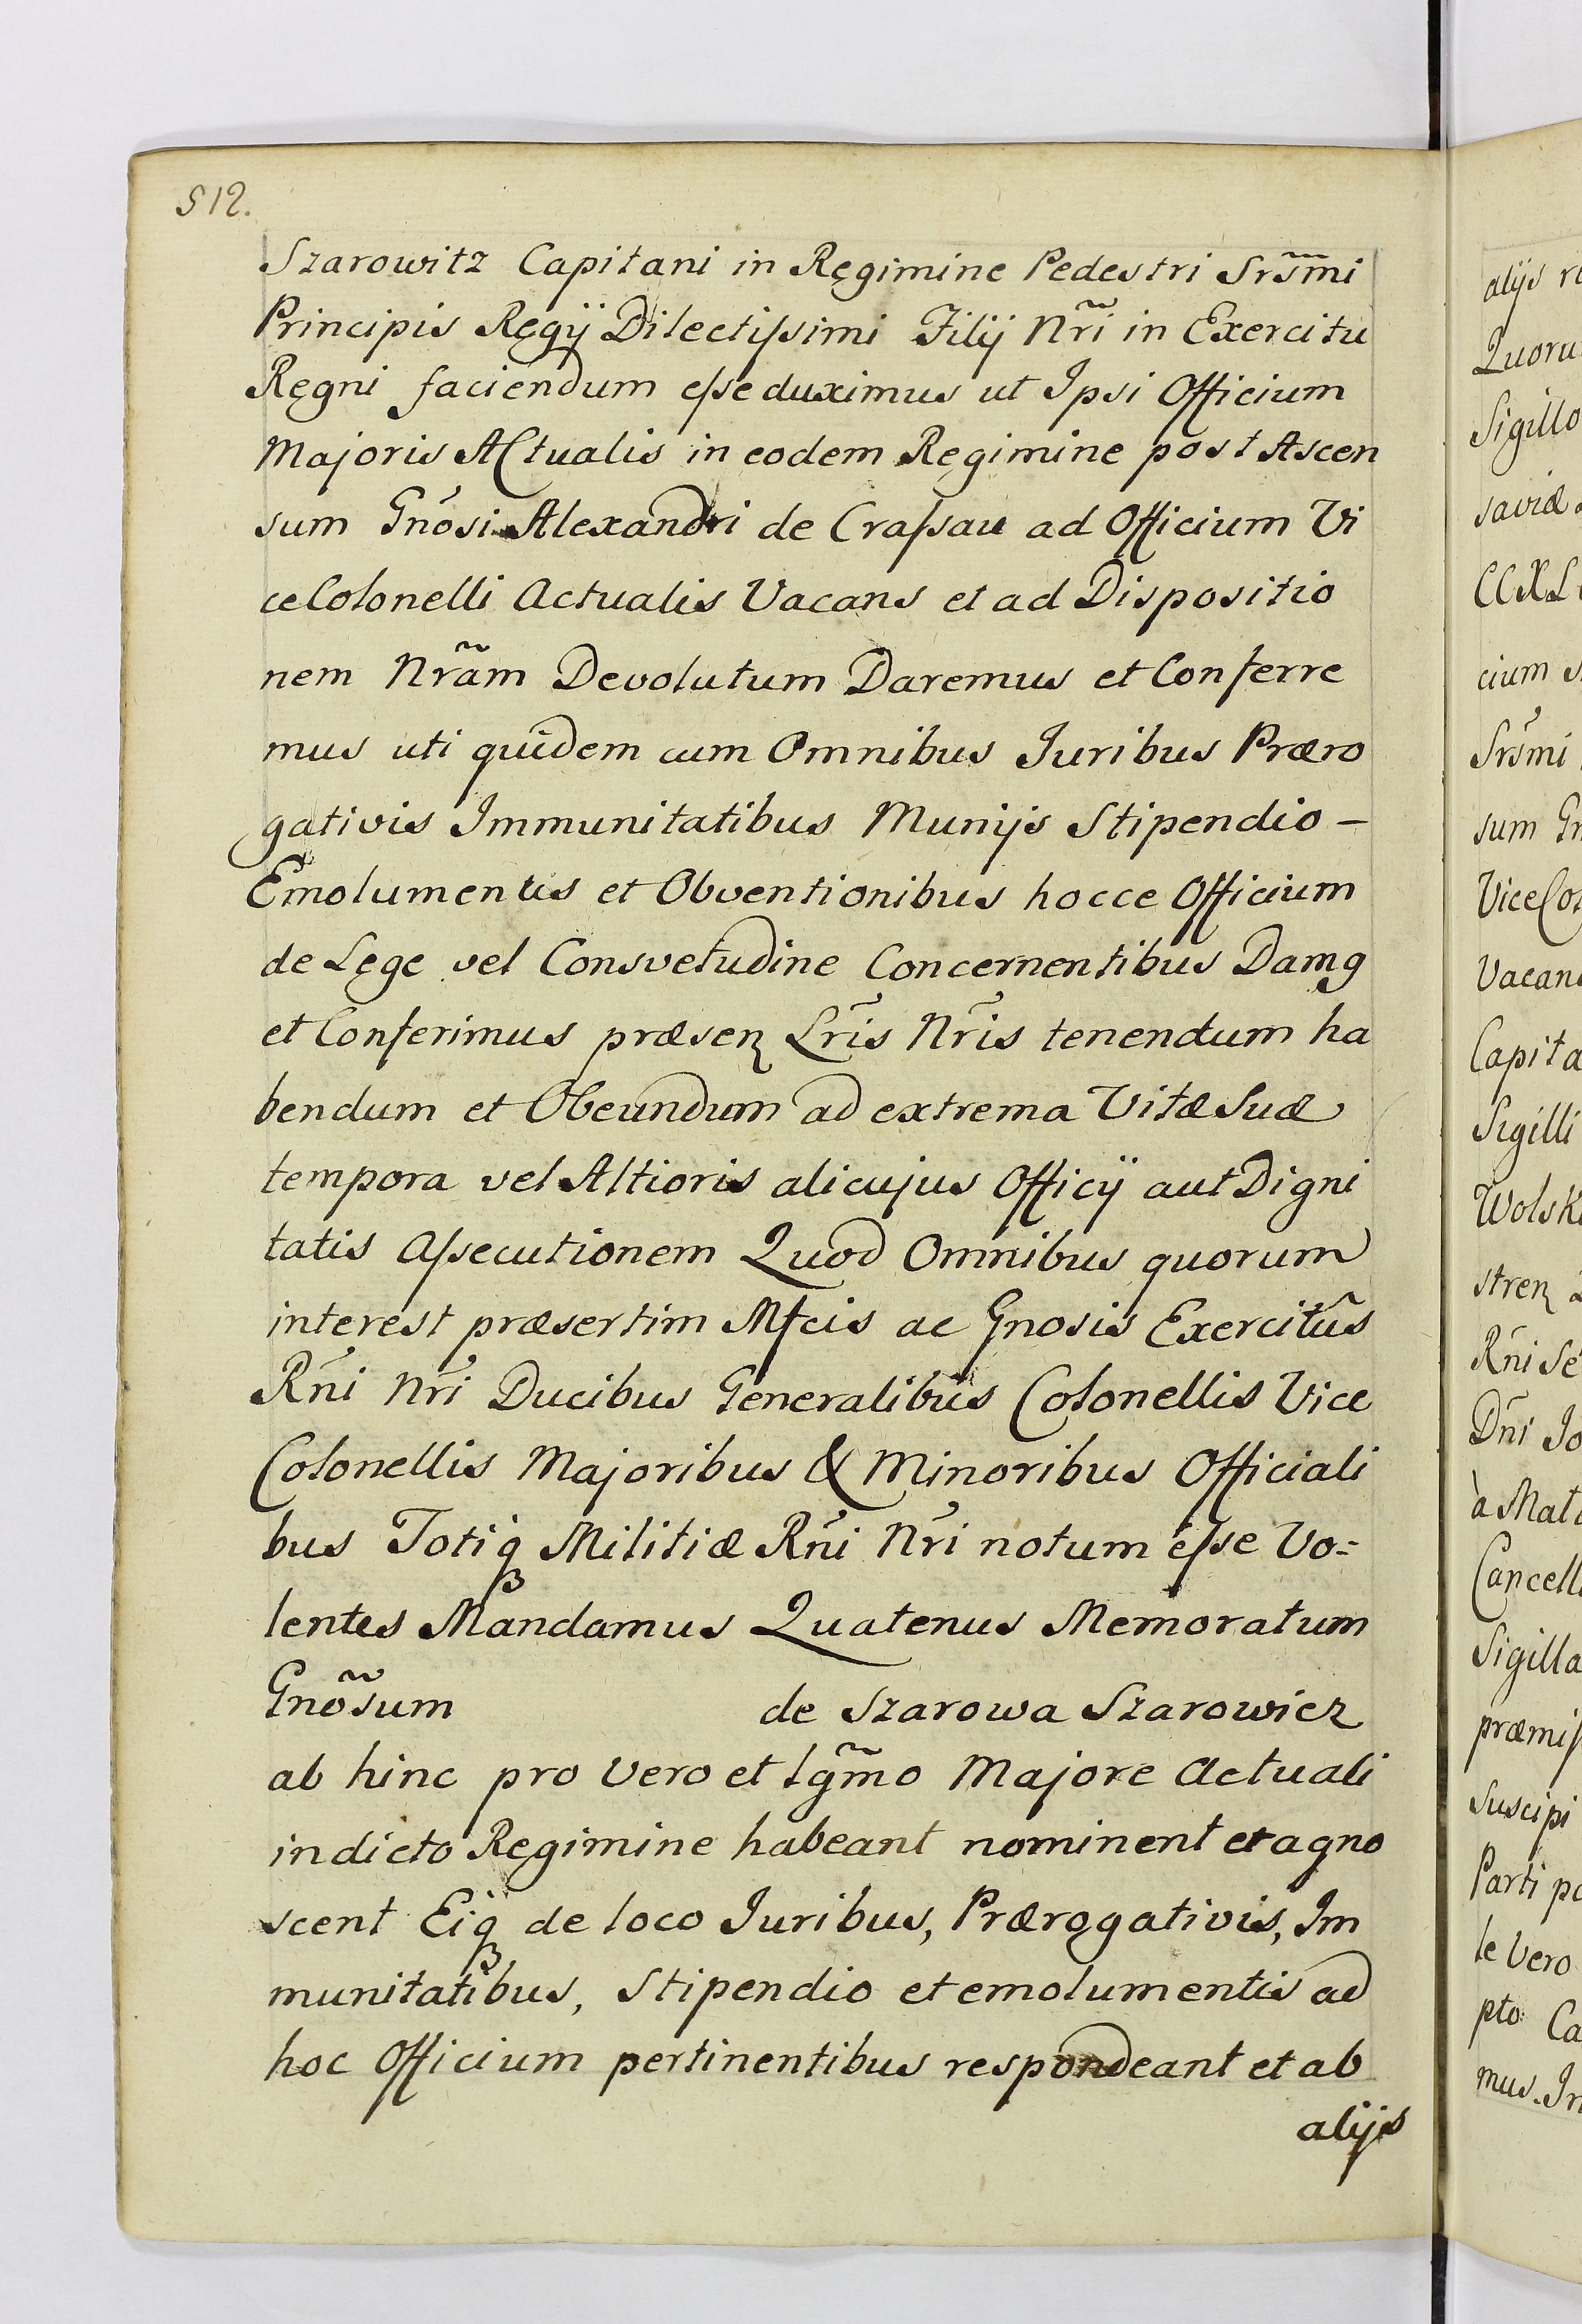 512.
Szarowitz Capitani in Regimine Pedestri Srs̃mi
Principis Regÿ Dilectiſsimi Filÿ Nr̃i in Exercitu
Regni faciendum eſse duximus ut Ipsi Officium
Majoris Actualis in eodem Regimine post Ascen
sum Gnõsi Alexandri de Craſsau ad Officium Vi
ceColonelli Actualis Vacans et ad Dispositio
nem Nrãm Devolutum Daremus et Conferre
mus uti quidem cum Omnibus Juribus Præro
gativis Immunitatibus Munijs Stipendio –
Emolumentis et Obventionibus hocce Officium
de Lege vel Consvetudine Concernentibus Damꝯ
et Conferimus præsen Lr̃is Nr̃is tenendum ha
bendum et Obeundum ad extrema Vitæ Suæ
tempora vel Altioris alicujus Officÿ aut Digni
tatis Aſsecutionem Quod Omnibus quorum
interest præsertim Mfcis ac Gnosis Exercitûs
Rñi Nr̃i Ducibus Generalibus Colonellis Vice
Colonellis Majoribus & Minoribus Officiali
bus Totiqꝫ Militiæ Rñi Nr̃i notum eſse Vo=
lentes Mandamus Quatenus Memoratum
Gnõsum de Szarowa Szarowicz
ab hinc pro vero et lgm̃o Majore Actuali
in dicto Regimine habeant nominent et agno
scent Eiqꝫ de loco Juribus, Prærogativis, Im
munitatibus, Stipendio et emolumentis ad
hoc Officium pertinentibus respondeant et ab
alijs
alijs
Quoru
Sigillo
saviæ
CCXL
cium
Srs̃mi
sum Gn
ViceCol
Vacan
Capita
Sigilli
Wolsk
stren
Rñi Se
Dñi Jo
à Mat
Cancell
Sigilla
præmiſ
suscipi
Parti po
le Vero
pto Ca
mus. In